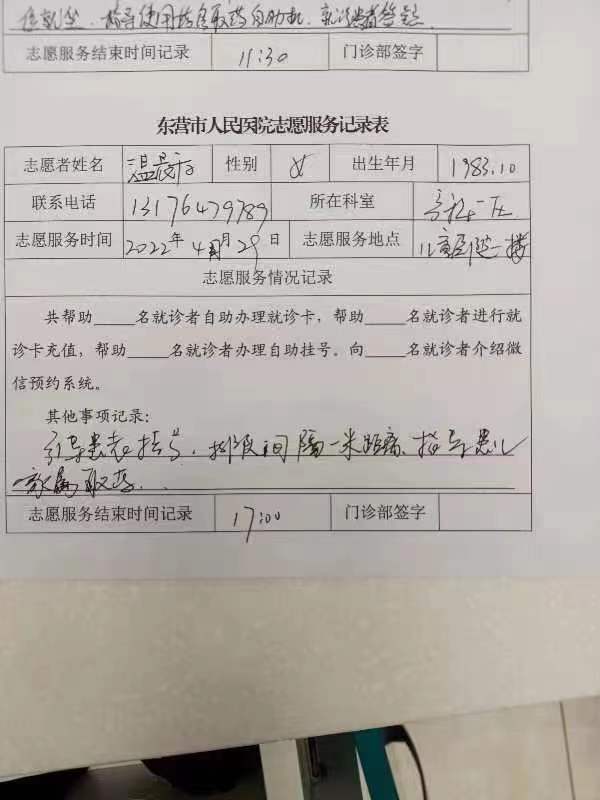 指导使用 取药自助机
志愿服务结束时间记录 11:30 门诊部签字
东营市人民医院志愿服务记录表
志愿者姓名 温 性别 女 出生年月 1983.10
联系电话 13176479789 所在科室
志愿服务时间 2022年4月29日 志愿服务地点 儿童 一楼
志愿服务情况记录
共帮助_____名就诊者自助办理就诊卡，帮助_____名就诊者进行就
诊卡充值，帮助_____名就诊者办理自助挂号。向_____名就诊者介绍微
信预约系统。
其他事项记录：
引导患者挂号，排队间隔一米距离、指导患儿
家属取药．
志愿服务结束时间记录 17:00 门诊部签字